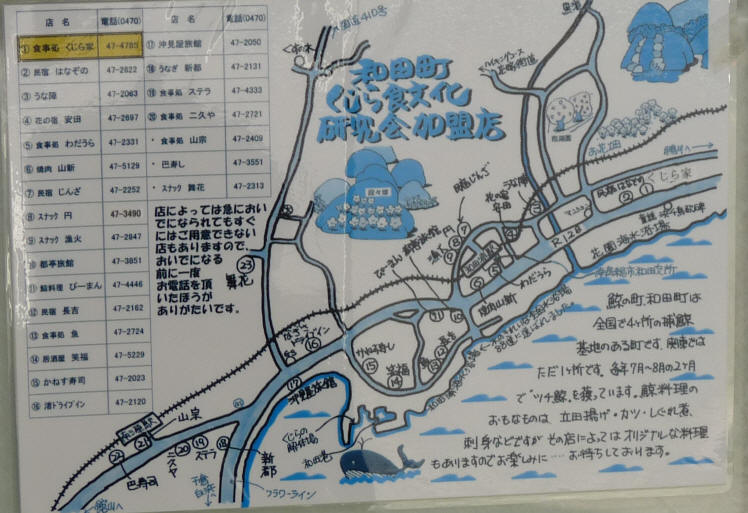 店　名
電話(0470)
店　名
電話(0470)
① 食事処 くじら家 47-4780
② 民宿 はなぞの 47-2822
③ うな陣 47-2063
④ 花の宿 安田 47-2697
⑤ 食事処 わだうら 47-2331
⑥ 焼肉 山新 47-5129
⑦ 民宿 じんざ 47-2252
⑧ スナック 円 47-3490
⑨ スナック 漁火 47-2847
⑩ 都亭旅館 47-3851
⑪ 鯨料理 ぴーまん 47-4446
⑫ 民宿 長吉 47-2162
⑬ 食事処 魚 47-2724
⑭ 居酒屋 笑福 47-5229
⑮ かねす寿司 47-2023
⑯ 渚ドライブイン 47-2120
⑰ 沖見屋旅館 47-2050
⑱ うなぎ 新都 47-2131
⑲ 食事処 ステラ 47-4333
⑳ 食事処 二久や 47-2721
・ 食事処 山宗 47-2409
・ 巴寿し 47-3551
・ スナック 舞花 47-2313
店によっては急におい
でになられてもすぐ
にはご用意できない
店もありますので、
おいでになる
前に一度
お電話を頂
いたほうが
ありがたいです。
和田町
くじら食文化
研究会加盟店
国道410号
お花畑
鴨川へ
くじら家
民宿はなぞの
② ①
花園海水浴場
R128
うな陣
花の宿
安田
民宿じんざ
わだうら
焼肉山新
ぴーまん
舞花
㉓
ドライブイン
⑯
⑮
笑福
⑭
⑰
沖見屋旅館
くじらの
解体場
和田港
山宗
㉑
㉒
巴寿司
二久ヤ
⑳
⑲
ステラ
⑱
新都
千倉
白浜へ
フラワーライン
館山へ
鯨の町和田町は
全国で4ヶ所の捕鯨
基地のある町です。関東では
ただ1ヶ所です。毎年7月〜8月の2ヶ月
で“ツチ鯨”を獲っています。鯨料理の
おもなものは、立田揚げ・カツ・しぐれ煮
刺身などですが その店によってはオリジナルな料理
もありますのでお楽しみに‥‥ お待ちしております。